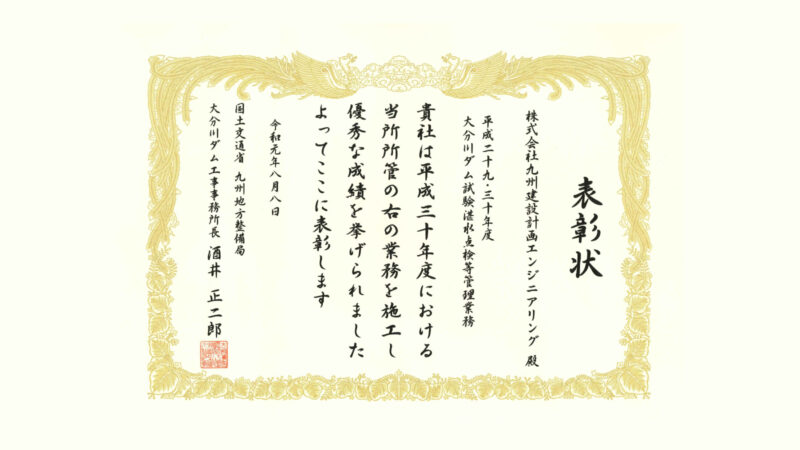 表彰状
株式会社九州建設計画エンジニアリング 殿
平成二十九・三十年度
大分川ダム試験湛水点検等管理業務
貴社は平成三十年度における
当所所管の右の業務を施工し
優秀な成績を挙げられました
よってここに表彰します
令和元年八月八日
国土交通省 九州地方整備局
大分川ダム工事事務所長 酒井 正二郎